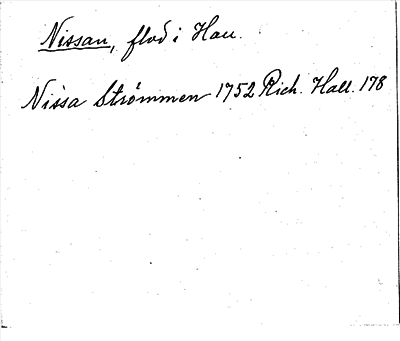 Nissan, flod i Hall.
Nissa Strömmen 1752 Rich. Hall. 178